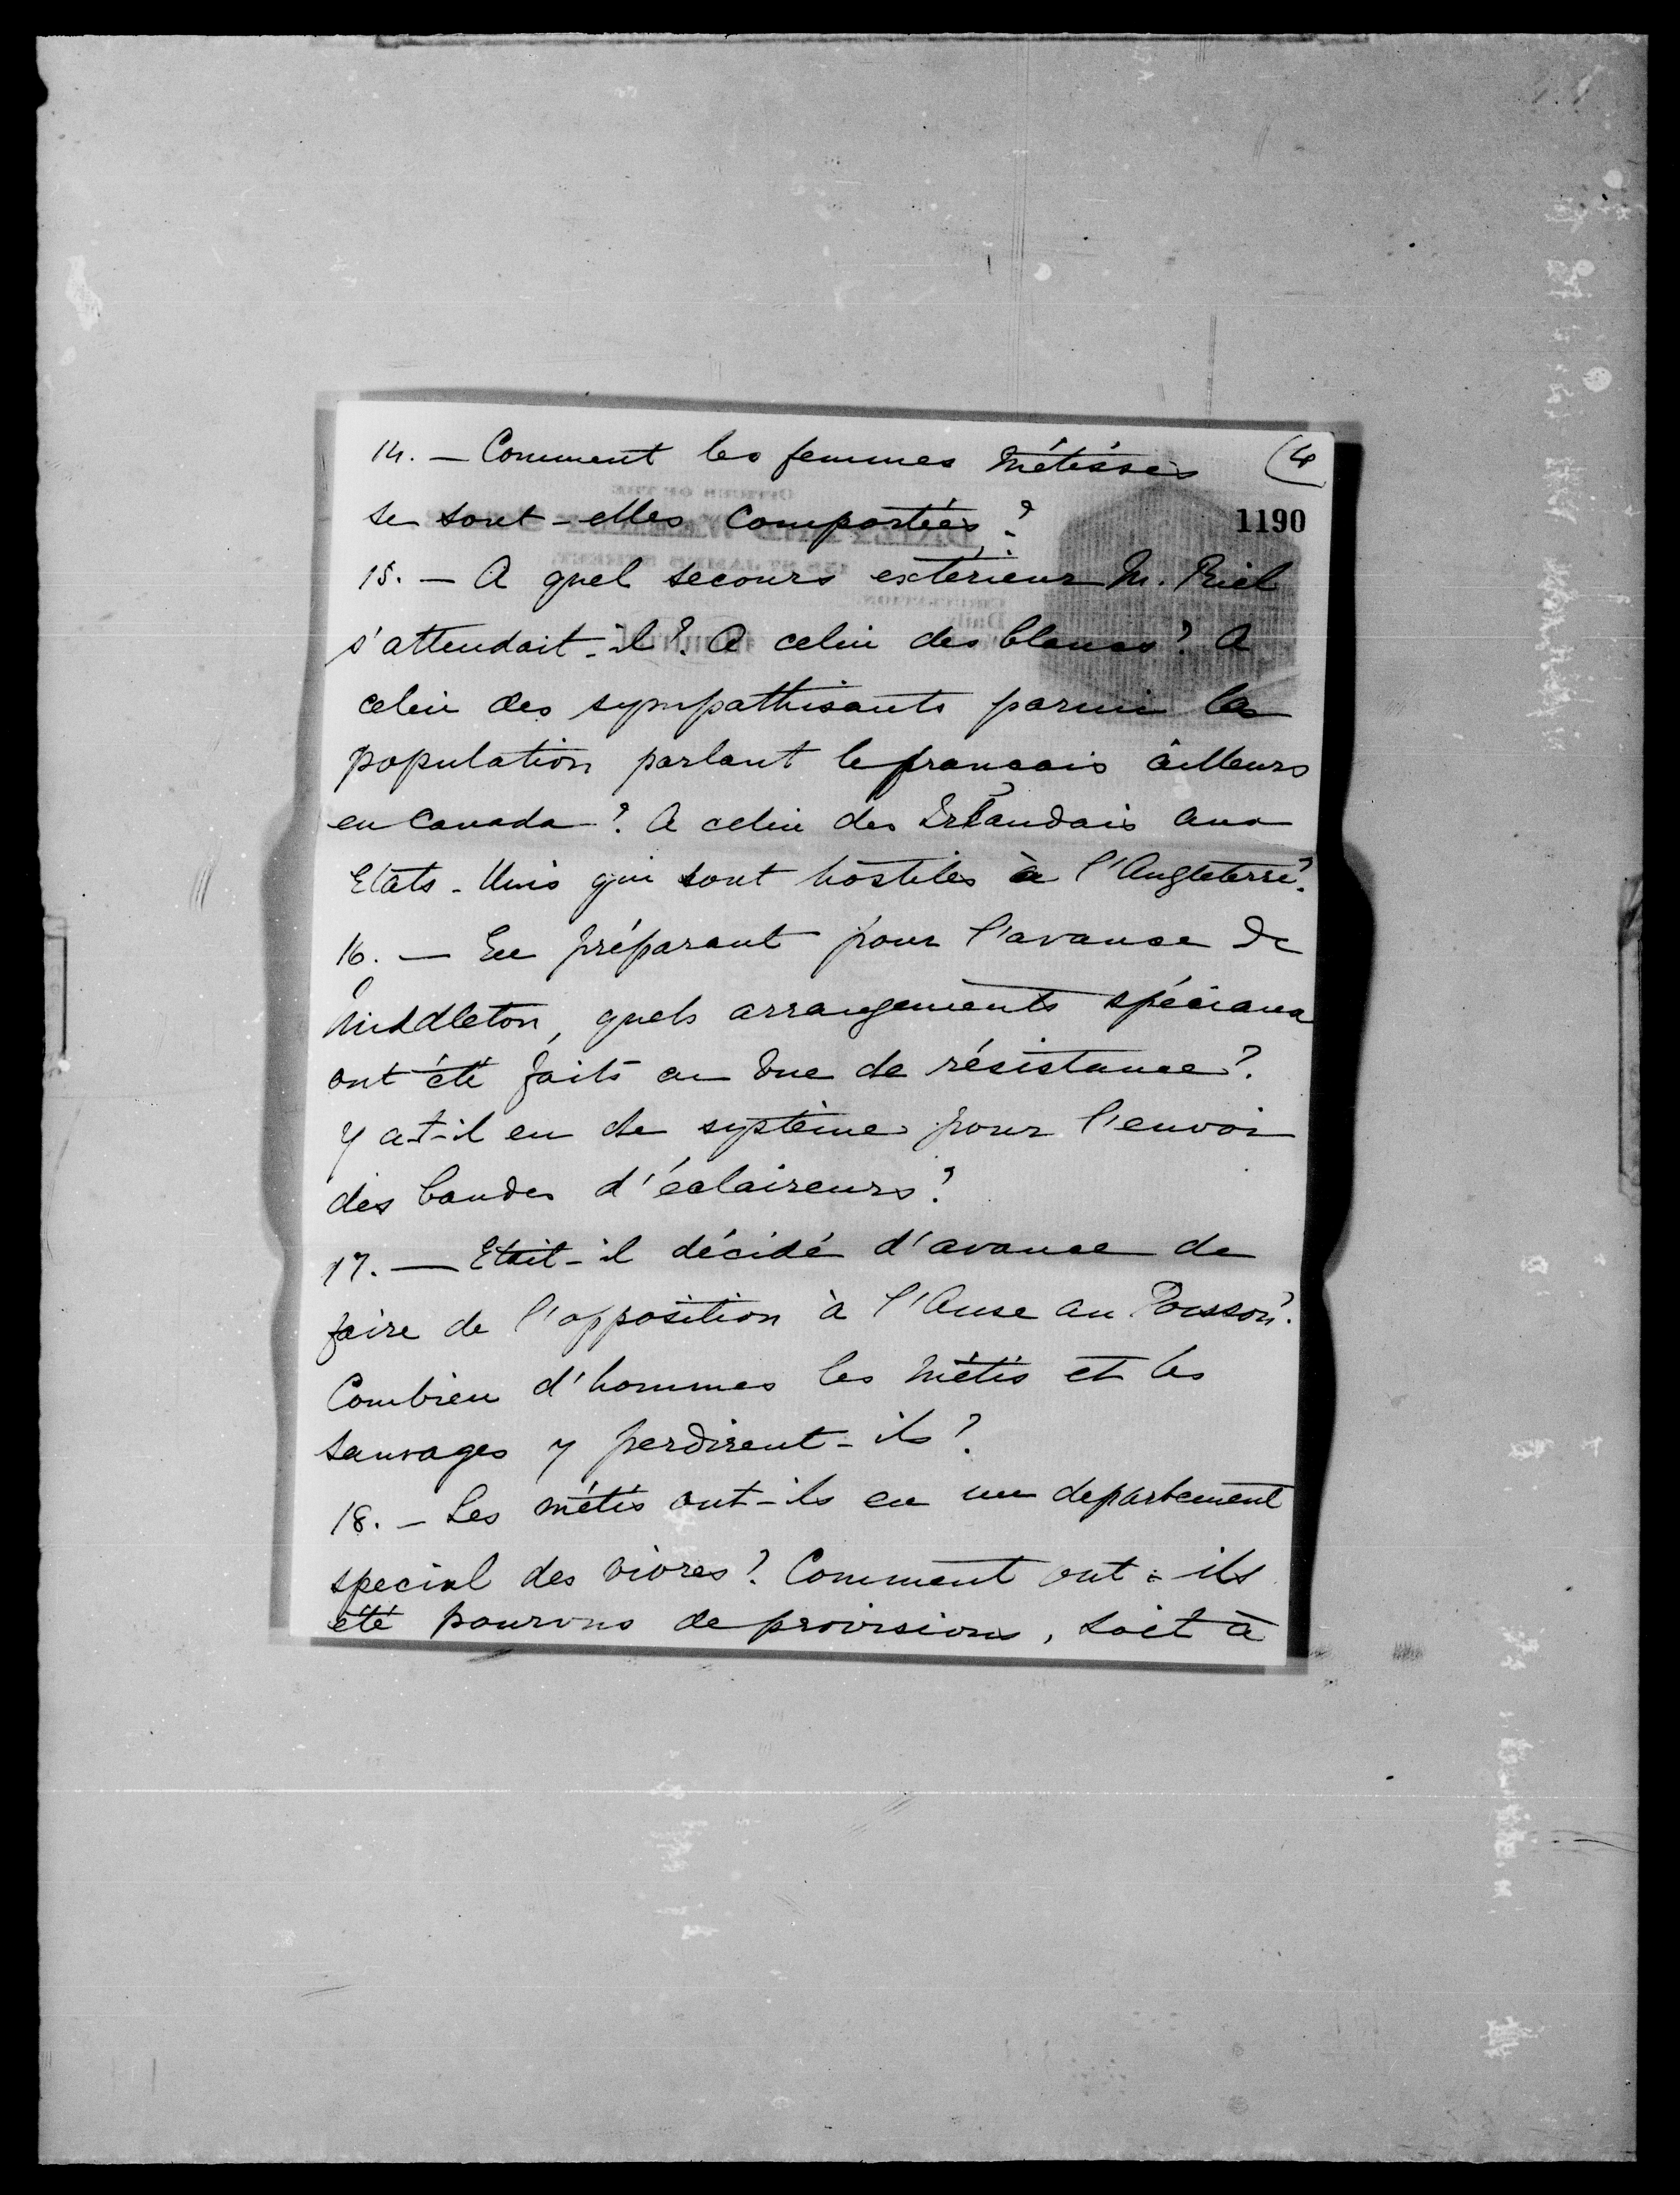 14. — Comment les femmes métisses (4
se sont-elles comportées ?
1190
15. — A quel secours exterieur M. Riel
s'attendait-il? A celui des blancs? A
celui des sympathisants parmi la
population parlant le français ailleurs
en Canada? A celui des Irlandais aux
Etats-Unis qui sont hostiles à l'Angleterre?
16. — En préparant pour l'avance de
Middleton, quels arrangements spéciaux
ont été faits en vue de résistance?
Y a-t-il eu de système pour l'envoi
des bandes d'éclaireurs?
17. — Etait-il décidé d'avance de
faire de l'opposition à l'Anse au Poisson?
Combien d'hommes les métis et les
sauvages y perdirent-ils?
18. — Les métis ont-ils eu un departement
special des vivres? Comment ont-ils
été pourvus de provisions, soit à